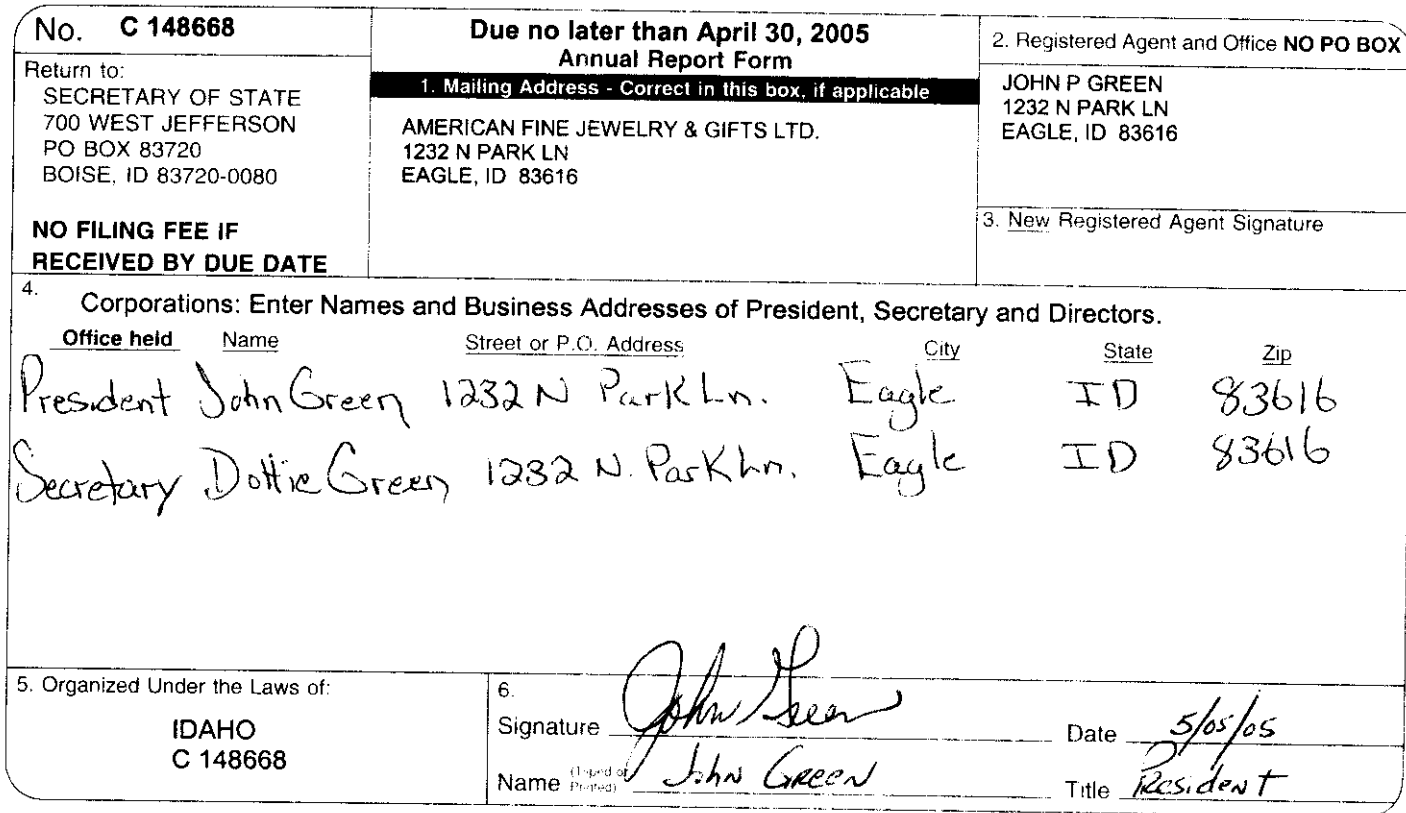 No. C 148668
Return to:
SECRETARY OF STATE
700 WEST JEFFERSON
PO BOX 83720
BOISE, ID 83720-0080
NO FILING FEE IF
RECEIVED BY DUE DATE
Due no later than April 30, 2005
Annual Report Form
1. Mailing Address - Correct in this box, if applicable
AMERICAN FINE JEWELRY & GIFTS LTD.
1232 N PARK LN
EAGLE, ID 83616
2. Registered Agent and Office NO PO BOX
JOHN P GREEN
1232 N PARK LN
EAGLE, ID 83616
3. New Registered Agent Signature
4. Corporations: Enter Names and Business Addresses of President, Secretary and Directors.
Office held Name Street or P.O. Address City State Zip
President John Green 1232 N Park Ln. Eagle ID 83616
Secretary Dottie Green 1232 N. Park Ln. Eagle ID 83616
5. Organized Under the Laws of:
IDAHO
C 148668
6.
Signature John Green Date 5/05/05
Name (Typed or Printed) John Green Title President